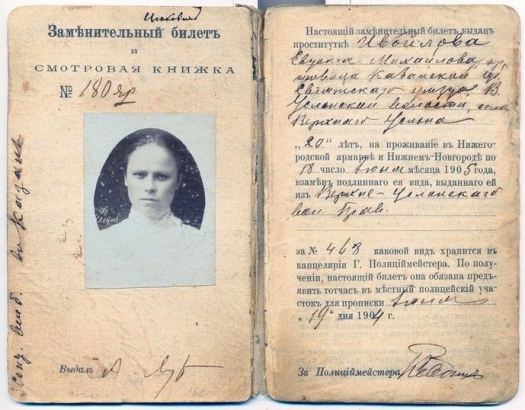 Замѣнительный билетъ
и
СМОТРОВАЯ КНИЖКА
№ 180 яр
Выдалъ
Настоящій замѣнительный билетъ выданъ
проституткѣ Ивойлова
Евгенія Михайлова
Казанской губ
Свіяжскаго уѣзда В.
Услонской волости, села
Верхняго Услона
„20" лѣтъ, на проживаніе въ Нижего-
родской ярмаркѣ и Нижнемъ-Новгородѣ по
18 число Іюня мѣсяца 1905 года,
взамѣнъ подлиннаго ея вида, выданнаго ей
изъ Верхне-Услонскаго
вол Прав.
за № 463 каковой видъ хранится въ
канцеляріи Г. Полиціймейстера. По полу-
ченіи, настоящій билетъ она обязана предъ-
явить тотчасъ въ мѣстный полицейскій уча-
стокъ для прописки Іюня
„19" дня 1904 г.
За Полиціймейстера